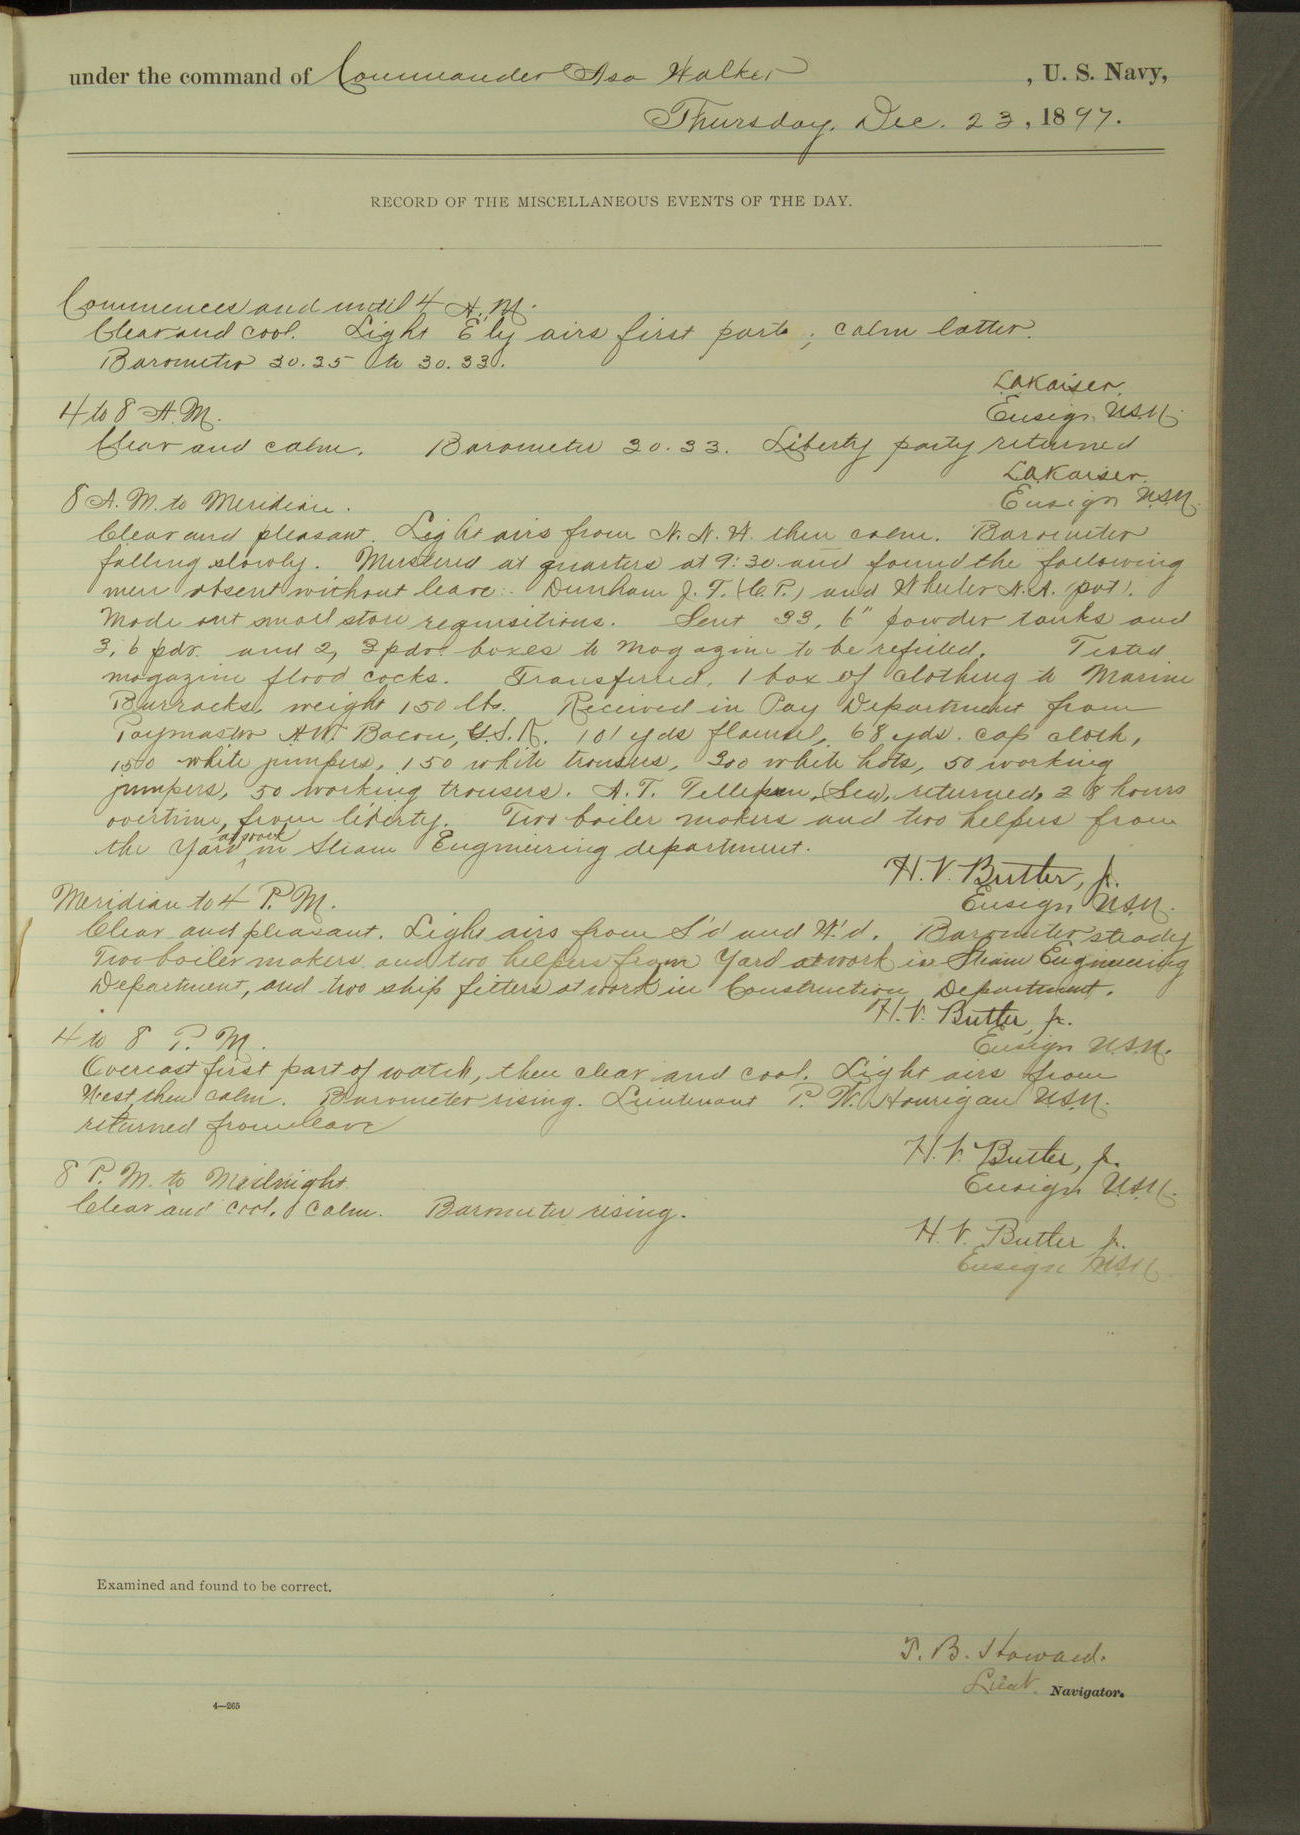 under the command of Commander Asa Walker , U. S. Navy,
Thursday, Dec. 23, 1897.
RECORD OF THE MISCELLANEOUS EVENTS OF THE DAY.
Commences and until 4 A.M.
Clear and cool. Light E'ly airs first part; calm latter.
Barometer 30.35 to 30.33.
L.A. Kaiser.
Ensign U.S.N.
4 to 8 A.M.
Clear and calm. Barometer 30.33. Liberty party returned
L.A. Kaiser.
Ensign U.S.N.
8 A.M. to Meridian.
Clear and pleasant. Light airs from N.N.W. then calm. Barometer
falling slowly. Mustered at quarters at 9:30 and found the following
men absent without leave: Dunham J.T. (C.P.) and Wheeler (pvt).
Made out small store requisitions. Sent 33, 6" powder tanks and
3, 6 pdr. and 2, 3 pdr. boxes to magazine to be refilled. Tested
magazine flood cocks. Transferred, 1 box of clothing to Marine
Barracks, weight 150 lbs. Received in Pay Department from
Paymaster A.W. Bacon, 101 yds flannel, 68 yds. cap cloth,
150 white jumpers, 150 white trousers, 300 white hats, 50 working
jumpers, 50 working trousers. A.T. (Sea), returned, 28 hours
overtime, from liberty. Two boiler makers and two helpers from
the Yard at work in Steam Engineering department.
H.V. Butler, Jr.
Ensign U.S.N.
Meridian to 4 P.M.
Clear and pleasant. Light airs from S'd and W'd. Barometer steady
Two boiler makers and two helpers from Yard at work in Steam Engineering
Department, and two ship fitters at work in Construction Department.
H.V. Butler, Jr.
Ensign U.S.N.
4 to 8 P.M.
Overcast first part of watch, then clear and cool. Light airs from
West, then calm. Barometer rising. Lieutenant P.W. Hourigan U.S.N.
returned from leave
H.V. Butler, Jr.
Ensign U.S.N.
8 P.M. to Midnight
Clear and cool. Calm. Barometer rising.
H.V. Butler Jr.
Ensign U.S.N.
Examined and found to be correct.
T. B. Howard.
Lieut. Navigator.
4—265